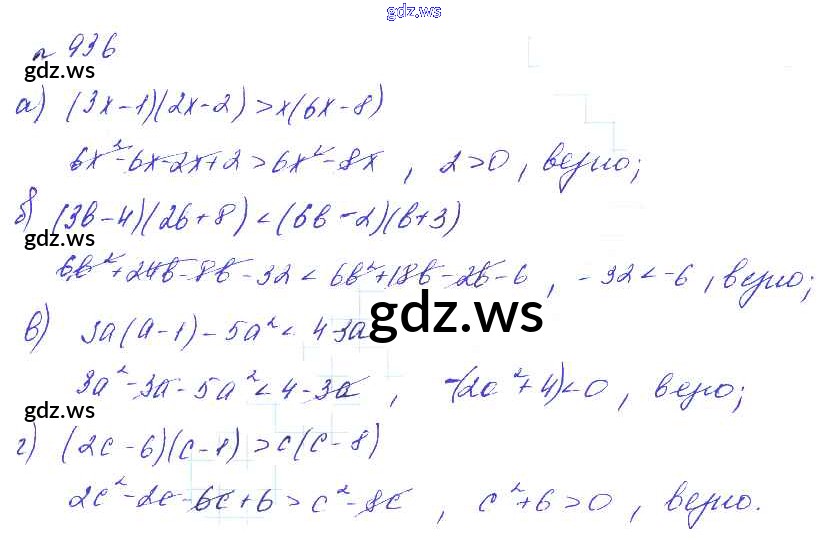 gdz.ws
№ 936
gdz.ws
а) (3x-1)(2x-2)>x(6x-8)
6x²-6x-2x+2>6x²-8x, 2>0, верно;
б) (3b-4)(2b+8)<(6b-2)(b+3)
gdz.ws
6b²+24b-8b-32<6b²+18b-2b-6, -32<-6, верно;
gdz.ws
в) 3a(a-1)-5a²<4-3a
3a²-3a-5a²<4-3a, -(2a²+4)<0, верно;
gdz.ws
г) (2c-6)(c-1)>c(c-8)
2c²-2c-6c+6>c²-8c, c²+6>0, верно.